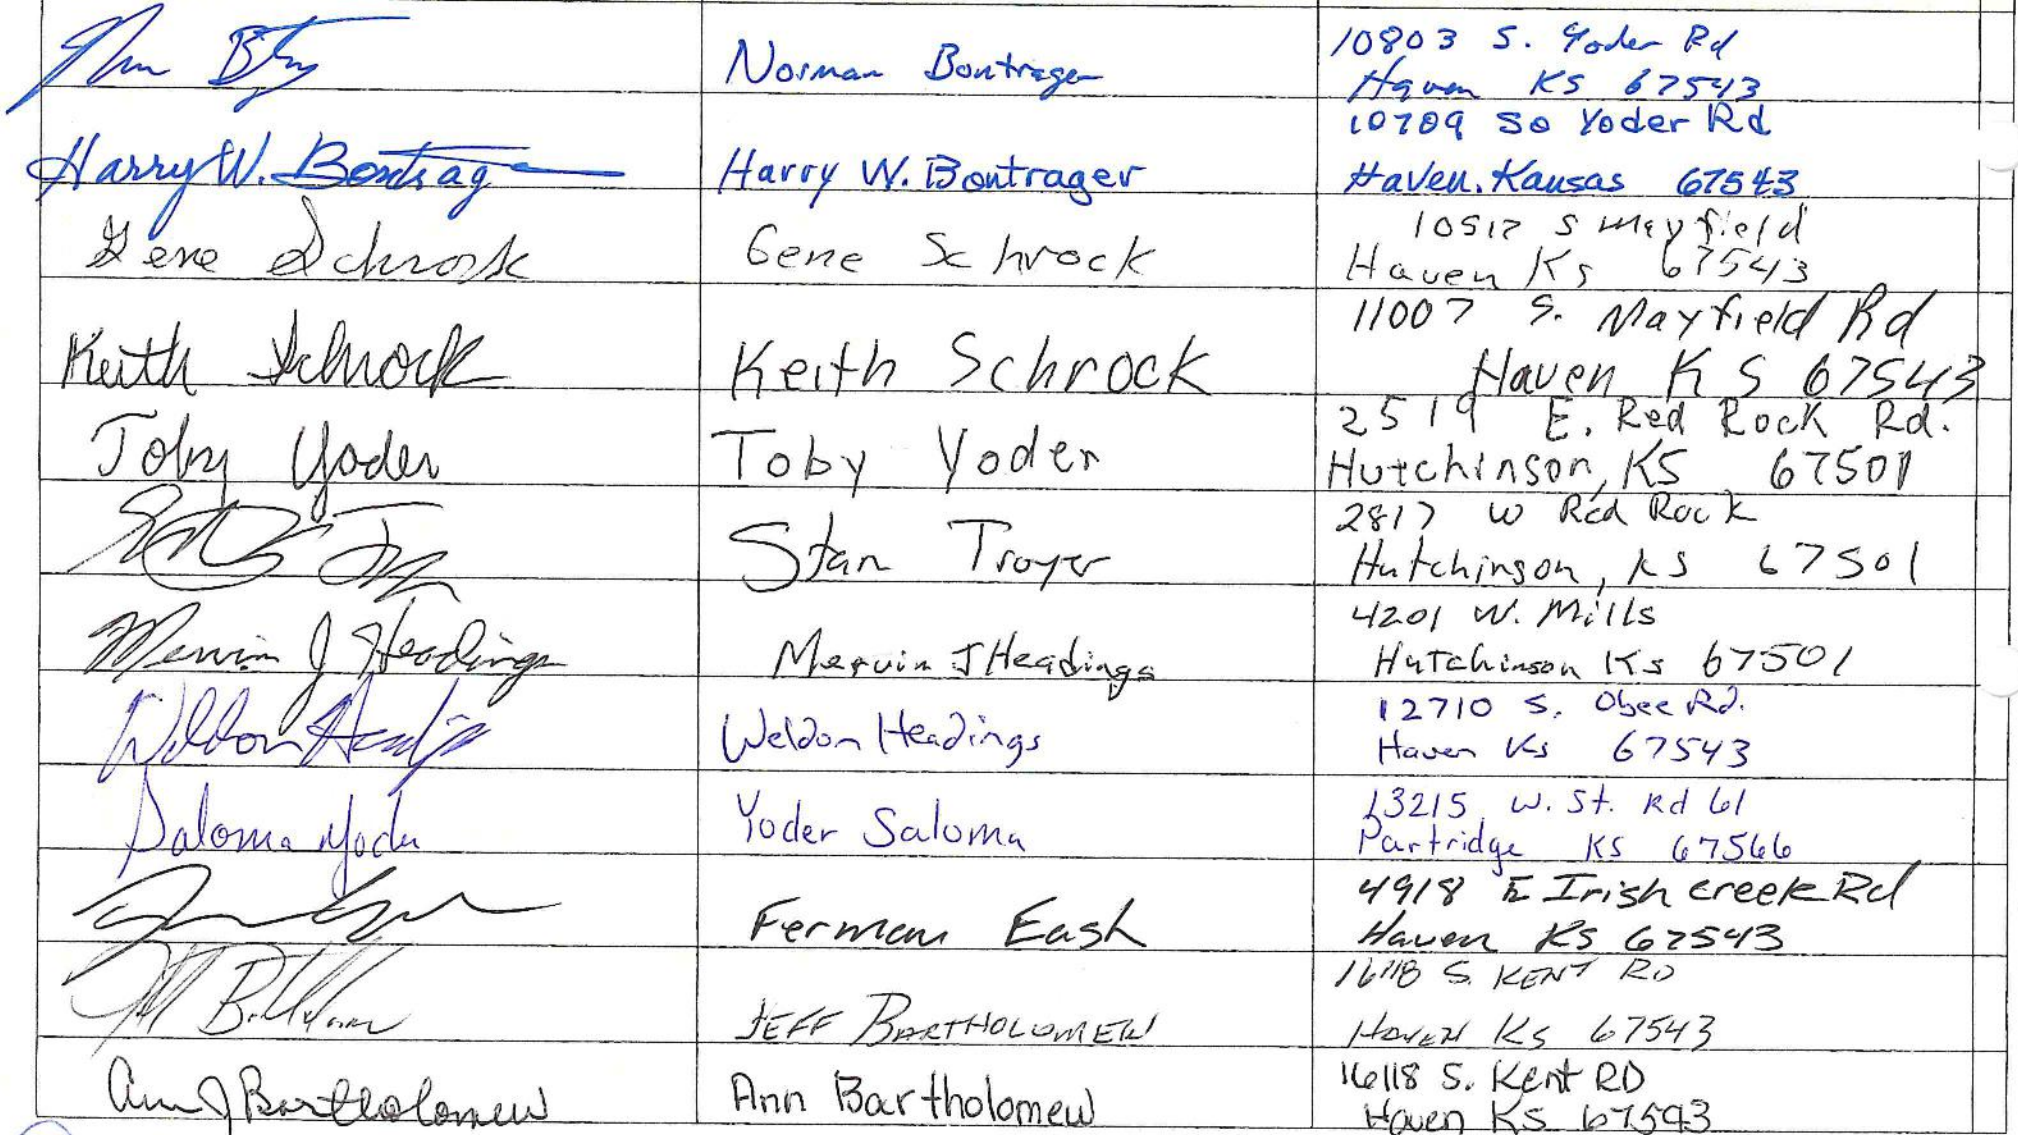 Norman Bontrager
10803 S. Yoder Rd
Haven KS 67543
Harry W. Bontrager
Harry W. Bontrager
10709 So Yoder Rd
Haven, Kansas 67543
Gene Schrock
Gene Schrock
10517 S Mayfield
Haven Ks 67543
Keith Schrock
Keith Schrock
11007 S. Mayfield Rd
Haven KS 67543
Toby Yoder
Toby Yoder
2519 E. Red Rock Rd.
Hutchinson, KS 67501
Stan Troyer
2817 W Red Rock
Hutchinson, KS 67501
Mervin J Headings
Mervin J Headings
4201 W. Mills
Hutchinson Ks 67501
Weldon Headings
Weldon Headings
12710 S. Obee Rd.
Haven Ks 67543
Saloma Yoder
Yoder Saloma
13215 W. St. Rd 61
Partridge KS 67566
Ferman Eash
4918 E Irish Creek Rd
Haven KS 67543
JEFF BARTHOLOMEW
16118 S. KENT RD
HAVEN KS 67543
Ann J Bartholomew
Ann Bartholomew
16118 S. Kent RD
Haven KS 67543